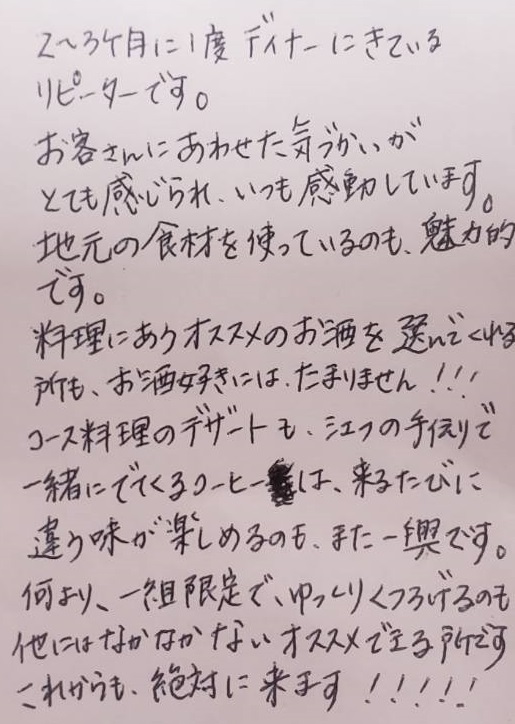 2〜3ケ月に1度ディナーにきている
リピーターです。
お客さんにあわせた気づかいが
とても感じられ、いつも感動しています。
地元の食材を使っているのも、魅力的
です。
料理にあうオススメのお酒を選んでくれる
所も、お酒好きには、たまりません!!!
コース料理のデザートも、シェフの手作りで
一緒にでてくるコーヒーは、来るたびに
違う味が楽しめるのも、また一興です。
何より、一組限定で、ゆっくりくつろげるのも
他にはなかなかないオススメできる所です
これからも、絶対に来ます!!!!!